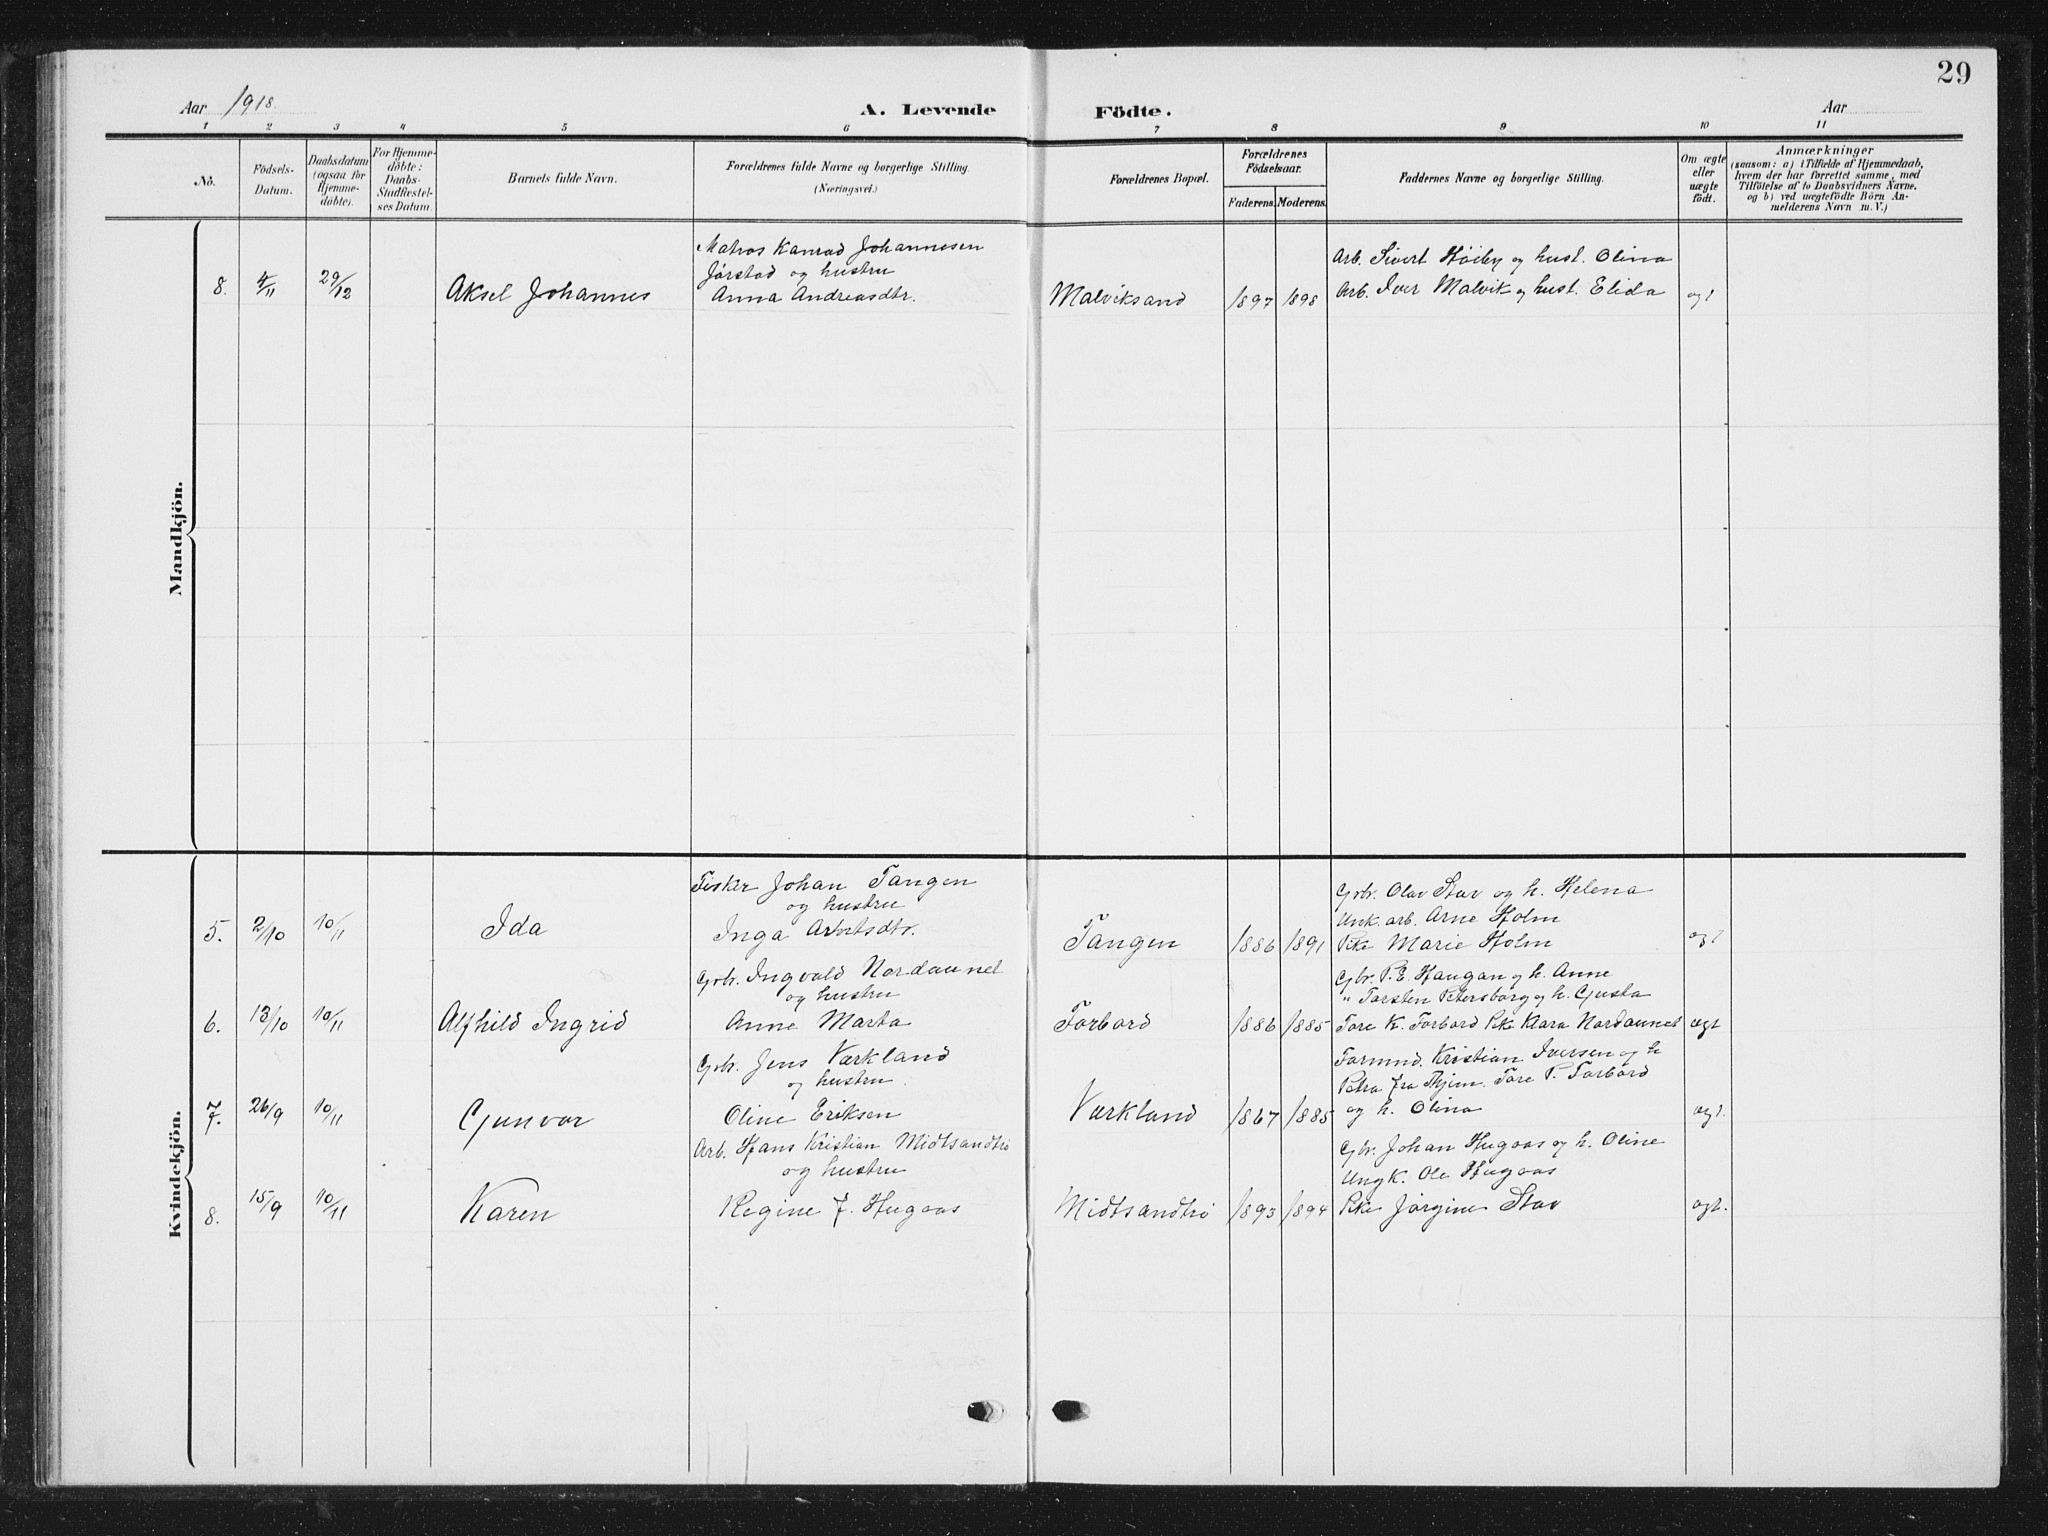 29
Aar 1918. A. Levende Födte. Aar
1 2 3 4 5 6 7 8 9 10 11
No.
Födsels-
Datum.
Daabsdatum
(ogsaa for
Hjemme-
döbte).
For Hjemme-
döbte:
Daabs-
Stadfæstel-
ses Datum.
Barnets fulde Navn.
Forældrenes fulde Navne og borgerlige Stilling.
(Næringsvei.)
Forældrenes Bopæl.
Forældrenes
Födselsaar.
Faderens. Moderens.
Faddernes Navne og borgerlige Stilling.
Om ægte
eller
uægte
født.
Anmærkninger
(saasom: a) i Tilfælde af Hjemmedaab,
hvem der har forrettet samme, med
Tilföielse af to Daabsvidners Navne,
og b) ved uægtefödte Börn An-
melderens Navn m.V.)
Mandkjön.
8. 4/11 29/12 Aksel Johannes
Matros Konrad Johannesen
Jørstad og hustru
Anna Andreasdtr.
Malviksand 1897 1898
Arb. Sivert Høiby og hust. Olina
Arb. Iver Malvik og hust. Elida
ægt
Kvindekjön.
5. 2/10 10/11 Ida
Fisker Johan Tangen
og hustru
Inga
Tangen 1886 1891
Gbr. Olav Stav og h. Helena
Unk. arb. Arne Holm
Pike Marie Holm
ægt
6. 13/10 10/11 Alfhild Ingrid
Gbr. Ingvald Nordaunet
og hustru
Anne Marta
Forbord 1886 1885
Gbr. P. E. Haugan og h. Anne
" Torsten Petersborg og h. Gusta
Tore K. Forbord Pike Klara Nordaunet
ægt
7. 26/9 10/11 Gunvor
Gbr. Jens Værkland
og hustru
Oline Eriksen
Værkland 1867 1885
Formnd. Kristian Iversen og h
Petra fra Thjem. Tore P. Forbord
og h. Olina
ægt.
8. 15/9 10/11 Karen
Arb. Hans Kristian Midtsandtrø
og hustru
Regine J. Hugaas
Midtsandtrø 1893 1894
Gbr. Johan Hugaas og h. Oline
Ungk. Ole Hugaas
Pike Jørgine Stav
ægt.